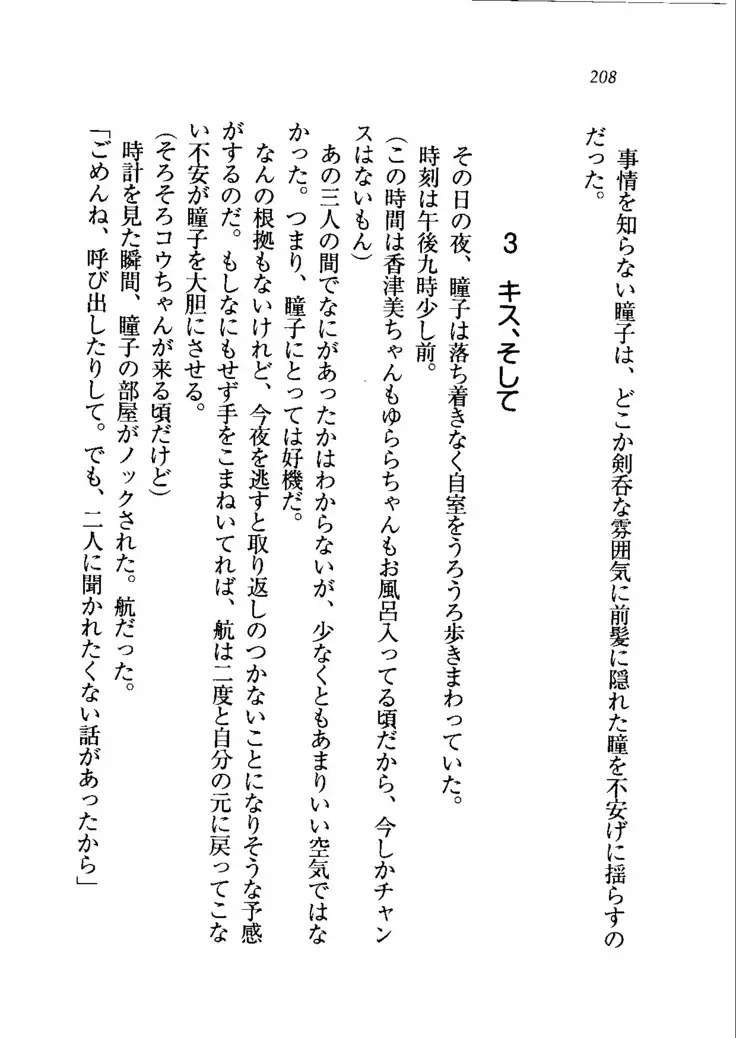 208
事情を知らない瞳子は、どこか剣呑な雰囲気に前髪に隠れた瞳を不安げに揺らすの
だった。
3　キス、そして
その日の夜、瞳子は落ち着きなく自室をうろうろ歩きまわっていた。
時刻は午後九時少し前。
(この時間は香津美ちゃんもゆららちゃんもお風呂入ってる頃だから、今しかチャン
スはないもん)
あの三人の間でなにがあったかはわからないが、少なくともあまりいい空気ではな
かった。つまり、瞳子にとっては好機だ。
なんの根拠もないけれど、今夜を逃すと取り返しのつかないことになりそうな予感
がするのだ。もしなにもせず手をこまねいてれば、航は二度と自分の元に戻ってこな
い不安が瞳子を大胆にさせる。
(そろそろコウちゃんが来る頃だけど)
時計を見た瞬間、瞳子の部屋がノックされた。航だった。
「ごめんね、呼び出したりして。でも、二人に聞かれたくない話があったから」